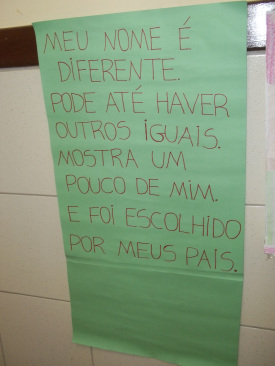 MEU NOME É
DIFERENTE.
PODE ATÉ HAVER
OUTROS IGUAIS.
MOSTRA UM
POUCO DE MIM.
E FOI ESCOLHIDO
POR MEUS PAIS.